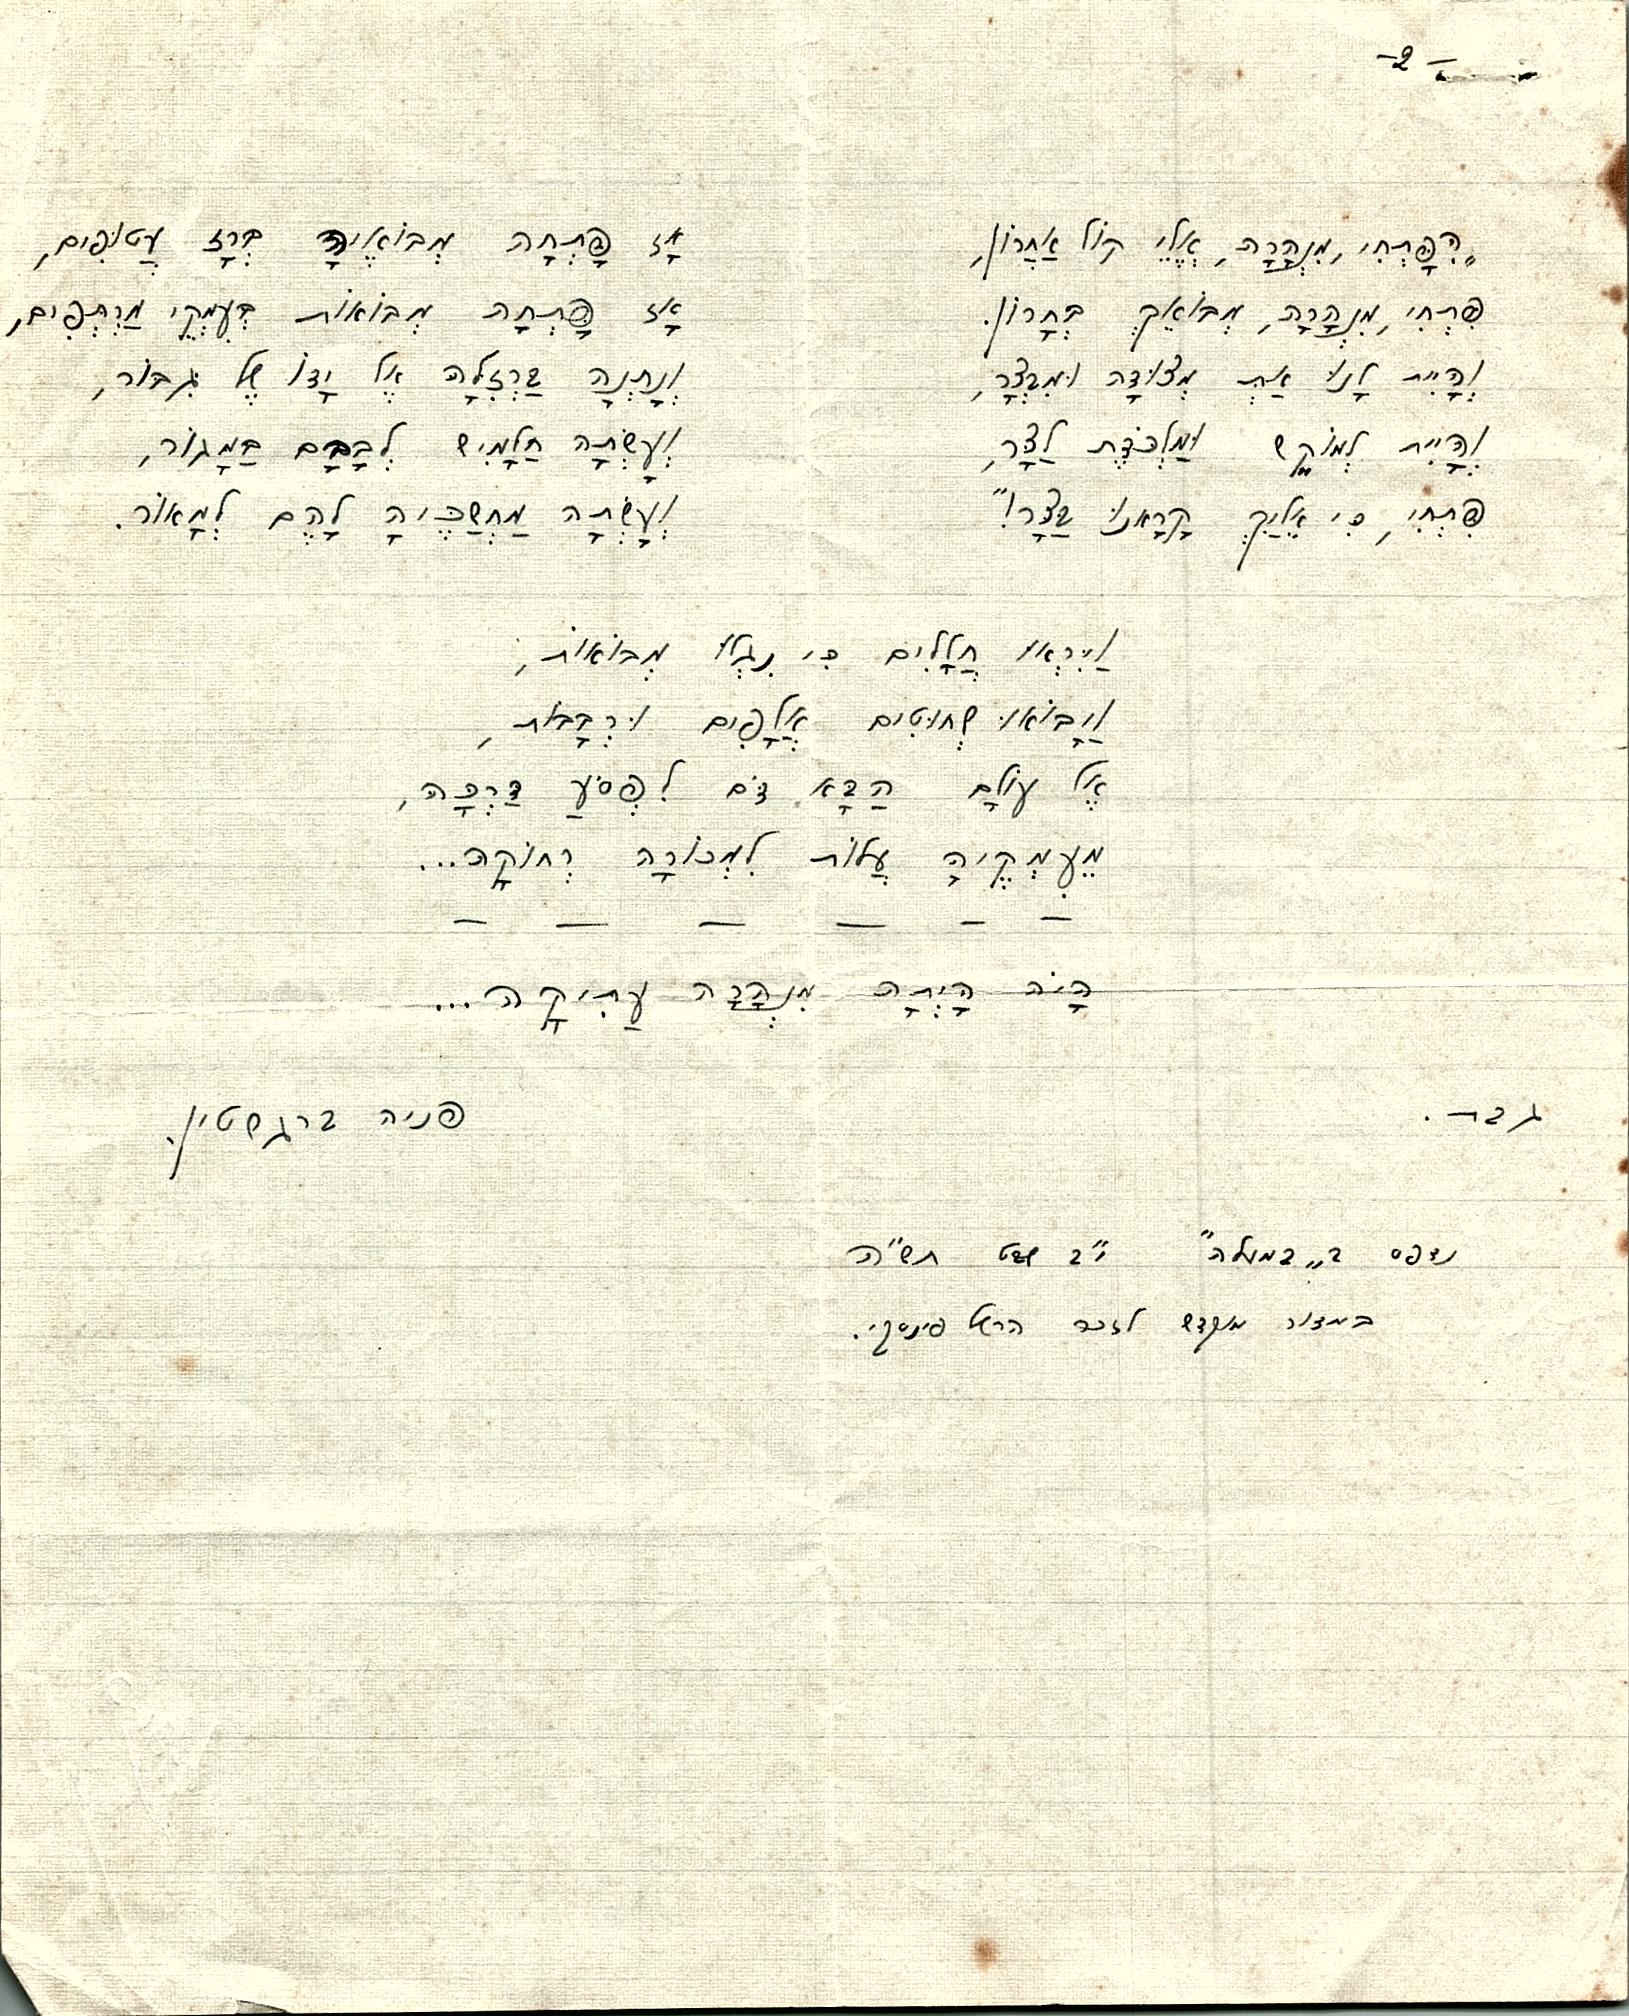 -2-
„הִפָּתְחִי, מִנְהָרָה, אֱלֵי קוֹל אַחֲרוֹן,
פִּתְחִי, מִנְהָרָה, מְבוֹאֵךְ בְּחָרוֹן.
וְהָיִית לָנוּ אַתְּ מְצוּדָה וּמִבְצָר,
וְהָיִית לְמוֹקֵשׁ וּמַלְכֹּדֶת לַצָּר,
פִּתְחִי, כִּי אֵלַיִךְ קָרָאנוּ בַּצָּר!"
אָז פָּתְחָה מְבוֹאֶיהָ בְּרָז עֲטוּפִים,
אָז פָּתְחָה מְבוֹאוֹת בְּעִמְקֵי מַרְתְּפִים,
וְנָתְנָה בַּרְזִלָּהּ אֶל יָדוֹ שֶׁל גִּבּוֹר,
וְעָשְׂתָה חַלָּמִישׁ לְבָבָם בַּמָּגוֹר,
וְעָשְׂתָה מַחְשַׁכֶּיהָ לָהֶם לְמָאוֹר.
וַיִּרְאוּ חֲלָלִים כִּי נִגְלוּ מְבוֹאוֹת,
וַיָּבוֹאוּ שְׁחוּטִים אֲלָפִים וּרְבָבוֹת,
אֶל עוֹלָם הַבָּא דֹּם לִפְסֹעַ דַּרְכָּהּ,
מֵעִמְקֶיהָ עֲלוֹת לִמְכוֹרָה רְחוֹקָה...
— — — — — —
הָיֹה הָיְתָה מִנְהָרָה עַתִּיקָה...
גבת.
פניה ברגשטין.
נדפס ב„במעלה" י"ב שבט תש"ה
במדור מוקדש לזכר הרשל פינסקי.